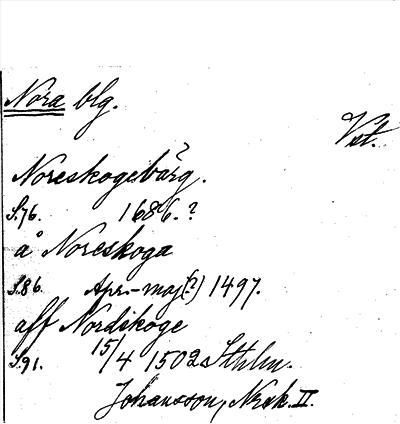 Nora blg.
Vst.
Noreskogebärg. ?
S.76. 1686. ?
å Noreskoga
S.86. Apr.-maj(?) 1497.
aff Nordskoge
S.91. 15/4 1502 Sthlm.
Johansson, Norsk. II.